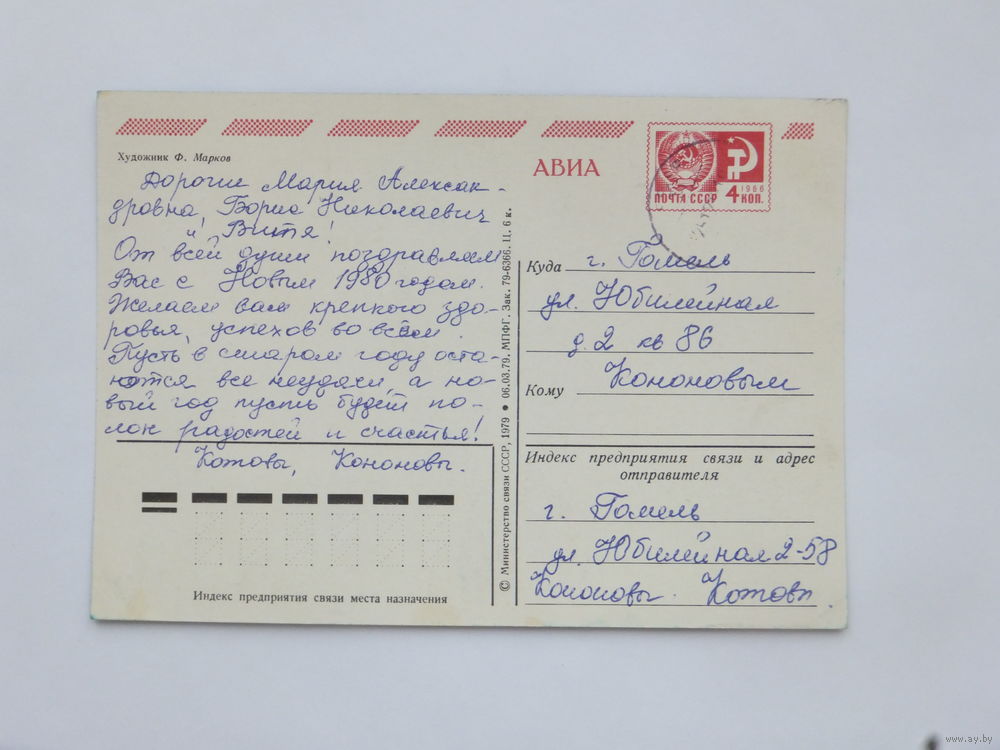 Художник Ф. Марков
АВИА
ПОЧТА СССР
1966
4 КОП.
Дороги Мария Алексан-
дровна, Борис Николаевич
и Витя!
От всей души поздравляем
Вас с Новым 1980 годом.
Желаем вам крепкого здо-
ровья, успехов во всём.
Пусть в старом году оста-
нутся все неудачи, а но-
вый год пусть будет по-
лон радостей и счастья!
Котовы, Кононовы.
Индекс предприятия связи места назначения
© Министерство связи СССР, 1979 ● 06.03.79. МПФГ. Зак. 79-6366. Ц. 6 к.
Куда г. Гомель
ул. Юбилейная
д. 2 кв 86
Кому Кононовым
Индекс предприятия связи и адрес
отправителя
г. Гомель
ул. Юбилейная 2-58
Кононовы. Котовы.
www.ay.by